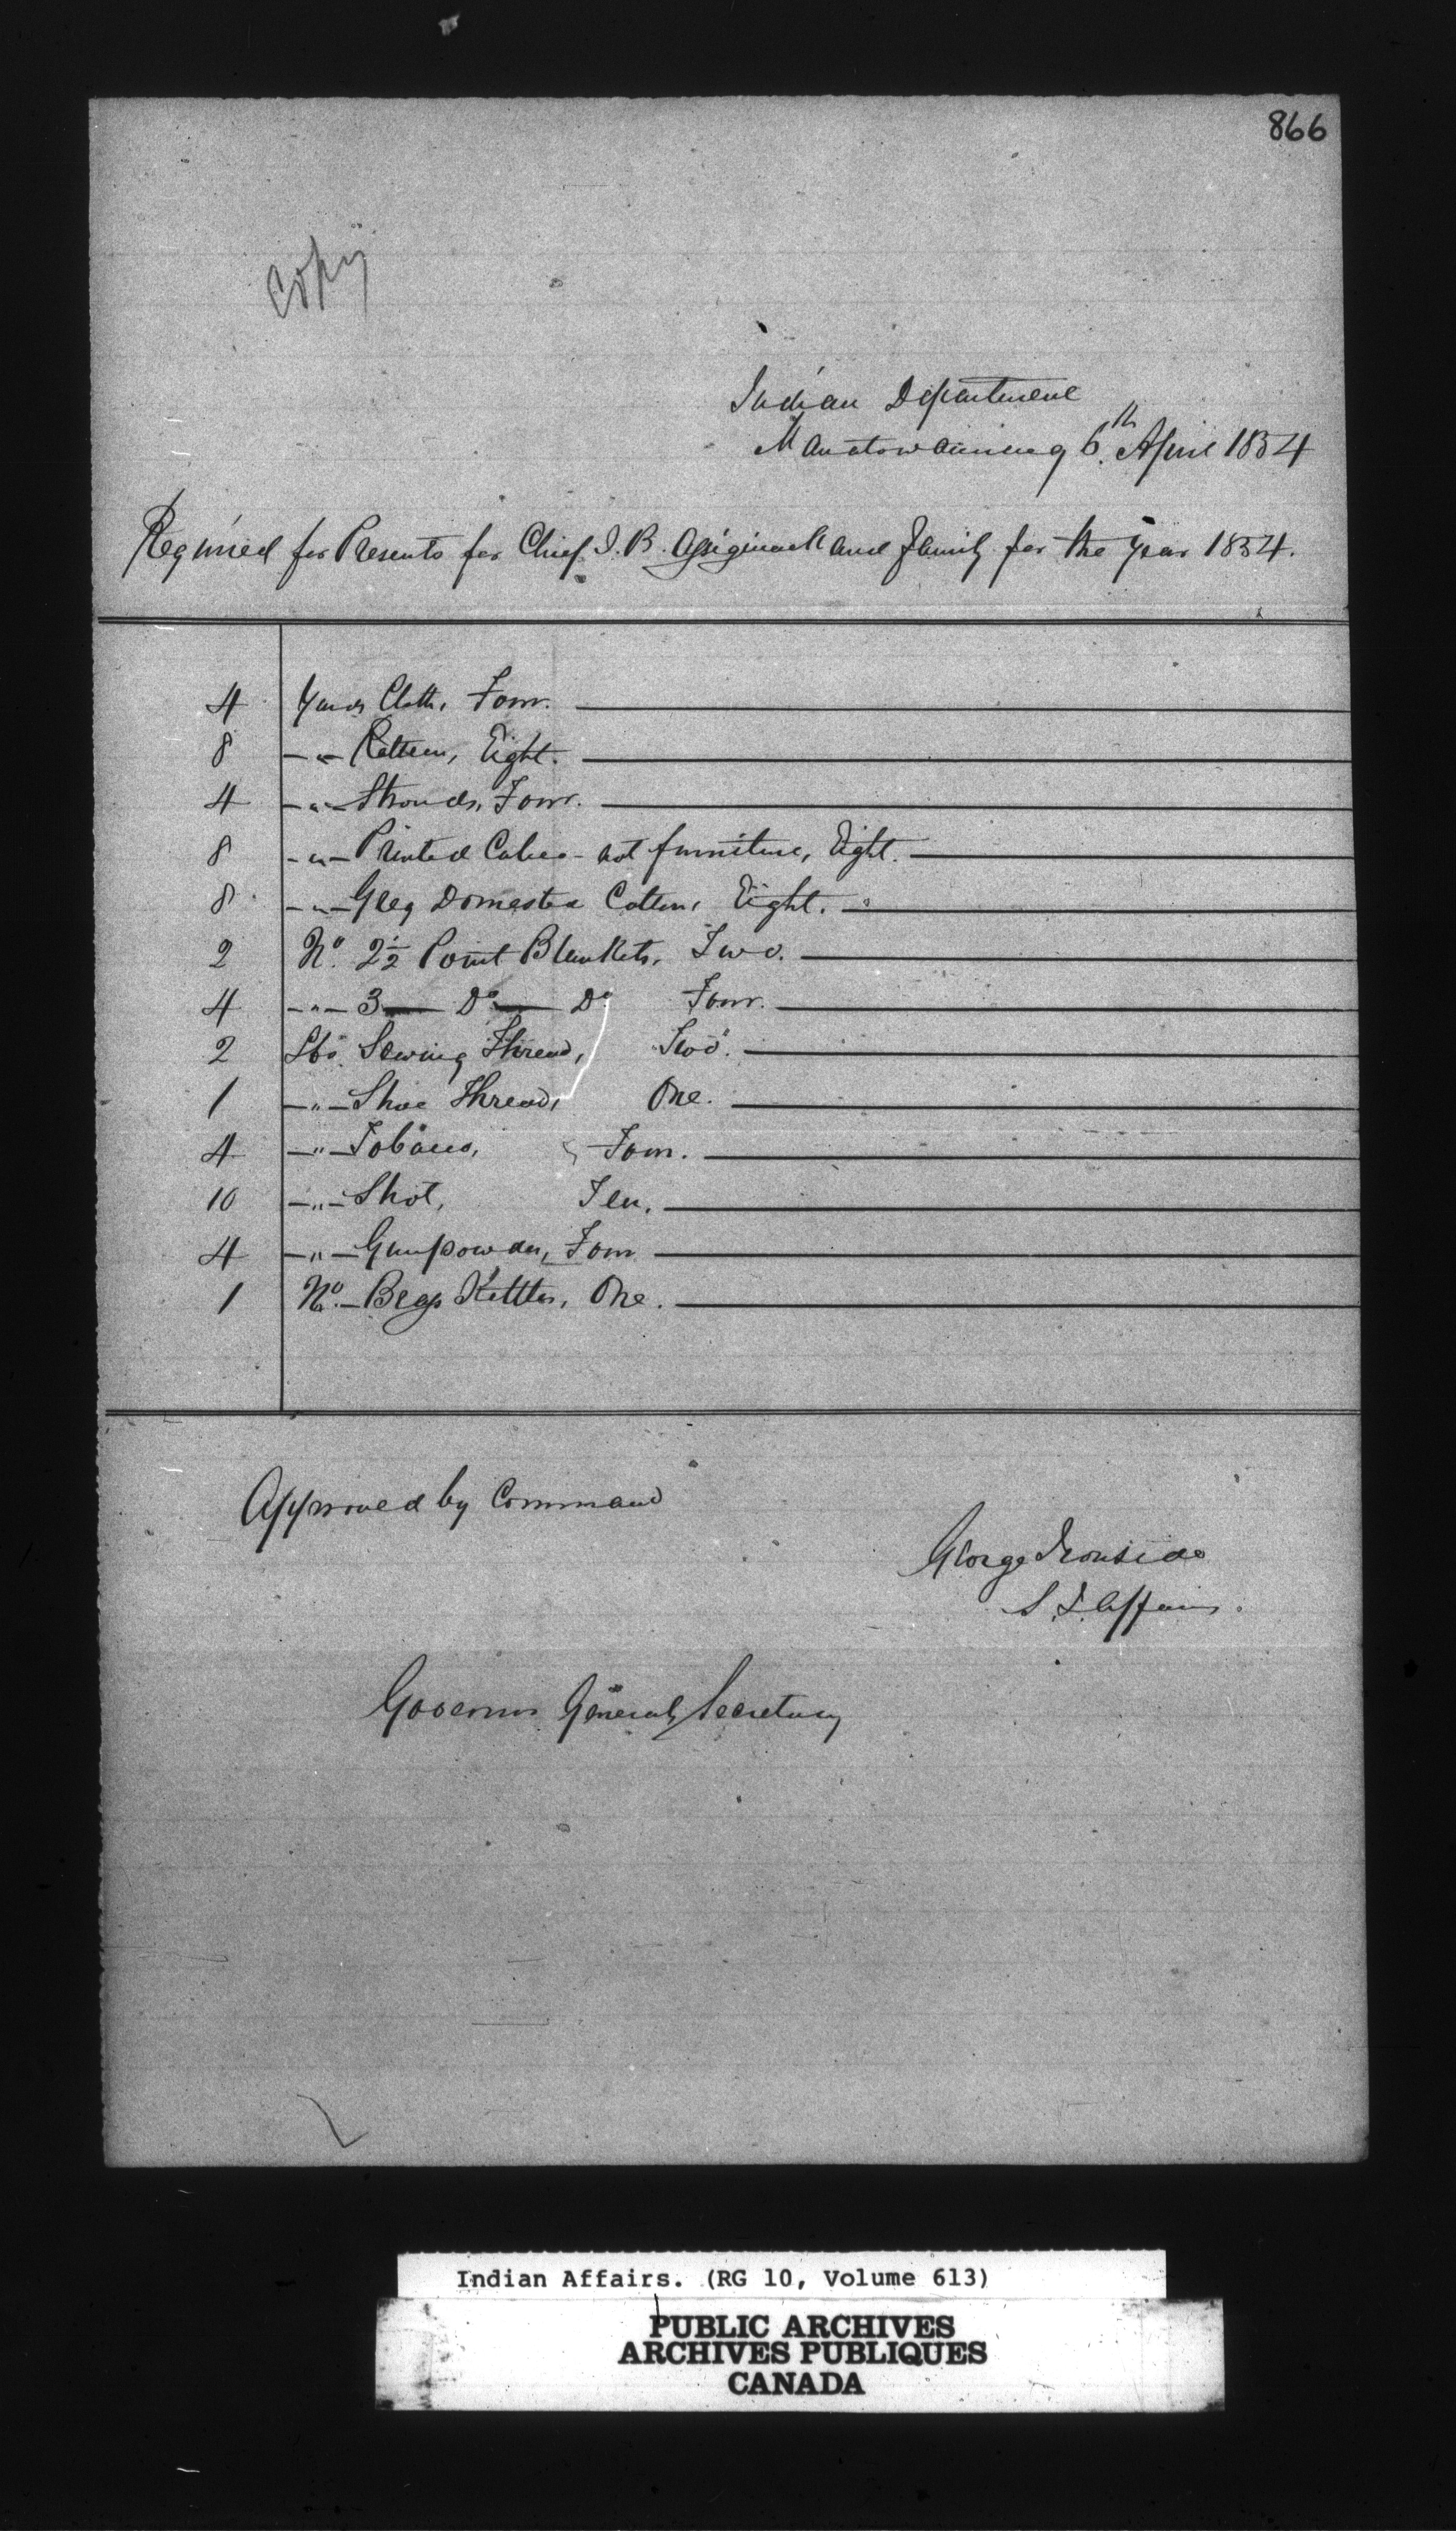 866
Copy
Indian Department
Manatowaning 6th April 1854
Required for Presents for Chief J. B. Assiginack and family for the Year 1854.
4 Yards Cloth, Four.
8 -"- Ratteen, Eight.
4 -"- Strouds, Four.
8 -"- Printed Calico - not furniture, Eight.
8 -"- Grey Domestic Cotton, Eight.
2 No. 2½ Point Blankets, Two.
4 -"- 3 — Do — Do Four.
2 Lbs. Sewing Thread, Two.
1 -"- Shoe Thread, One.
4 -"- Tobacco, Four.
10 -"- Shot, Ten.
4 -"- Gunpowder, Four
1 No. - Brass Kettles, One.
Approved by Command
George Ironside
S. I. Affairs.
Governor General's Secretary
Indian Affairs. (RG 10, Volume 613)
PUBLIC ARCHIVES
ARCHIVES PUBLIQUES
CANADA